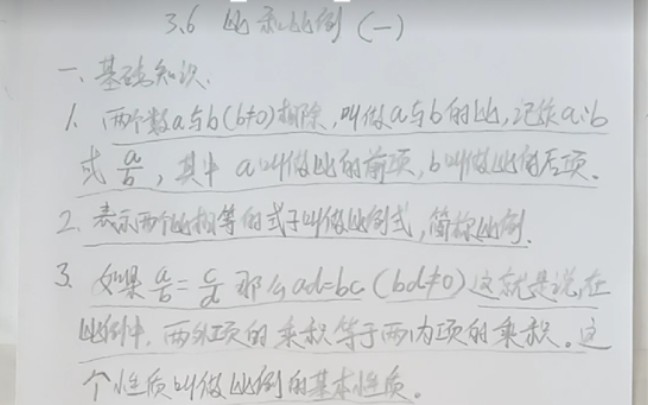 3.6 比和比例（一）
一、基础知识.
1. 两个数a与b(b≠0)相除,叫做a与b的比,记作a:b
或 a/b , 其中 a叫做比的前项,b叫做比的后项。
2. 表示两个比相等的式子叫做比例式,简称比例.
3. 如果 a/b = c/d 那么ad=bc (bd≠0) 这就是说,在
比例中,两外项的乘积等于两内项的乘积。这
个性质叫做比例的基本性质。